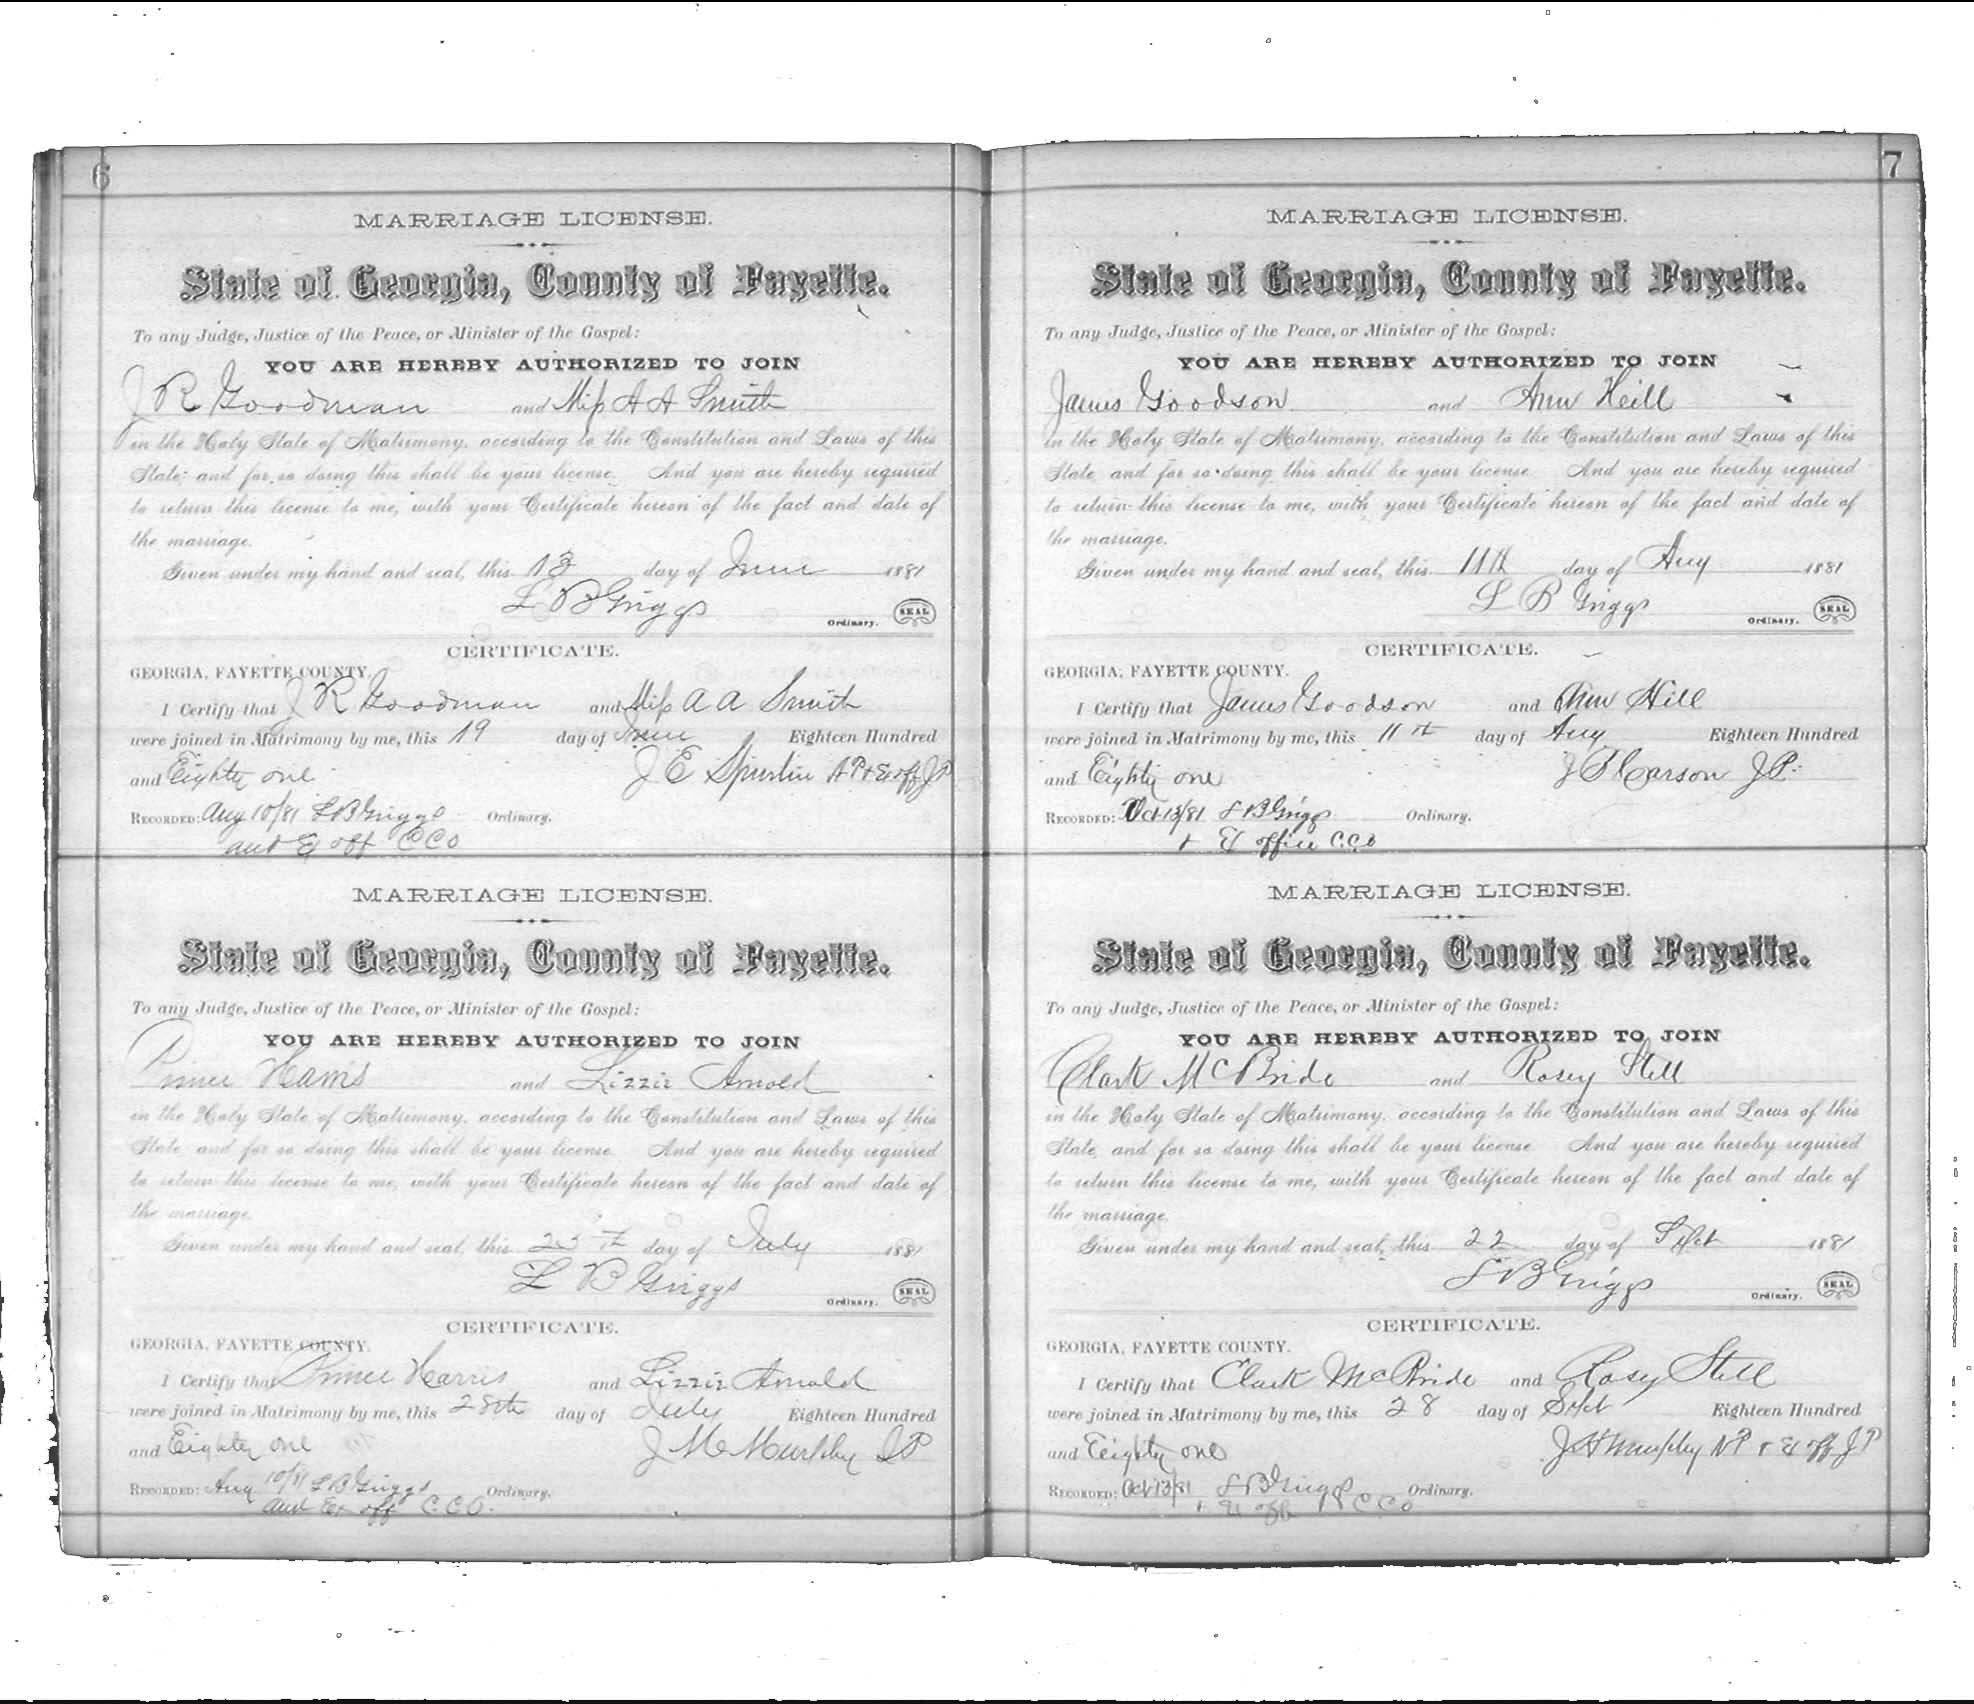 6
MARRIAGE LICENSE.
State of Georgia, County of Fayette.
To any Judge, Justice of the Peace, or Minister of the Gospel:
YOU ARE HEREBY AUTHORIZED TO JOIN
J R Goodman and Miss A A Smith
in the Holy State of Matrimony, according to the Constitution and Laws of this
State; and for so doing this shall be your license. And you are hereby required
to return this license to me, with your Certificate hereon of the fact and date of
the marriage.
Given under my hand and seal, this 13 day of June 1881
L B Griggs
Ordinary. SEAL
CERTIFICATE.
GEORGIA, FAYETTE COUNTY.
I Certify that J R Goodman and Miss A A Smith
were joined in Matrimony by me, this 19 day of June Eighteen Hundred
and Eighty one J E Spurlin & Ex off J P
RECORDED: Aug 10/81 L B Griggs Ordinary.
and Ex off C C O
MARRIAGE LICENSE.
State of Georgia, County of Fayette.
To any Judge, Justice of the Peace, or Minister of the Gospel:
YOU ARE HEREBY AUTHORIZED TO JOIN
Prince Harris and Lizzie Arnold
in the Holy State of Matrimony, according to the Constitution and Laws of this
State, and for so doing this shall be your license. And you are hereby required
to return this license to me, with your Certificate hereon of the fact and date of
the marriage.
Given under my hand and seal, this day of July 1881
L B Griggs
Ordinary. SEAL
CERTIFICATE.
GEORGIA, FAYETTE COUNTY.
I Certify that Prince Harris and Lizzie Arnold
were joined in Matrimony by me, this 28th day of July Eighteen Hundred
and Eighty one J Murphy J P
RECORDED: Aug 10/81 L B Griggs Ordinary.
and Ex off C.C.O.
7
MARRIAGE LICENSE.
State of Georgia, County of Fayette.
To any Judge, Justice of the Peace, or Minister of the Gospel:
YOU ARE HEREBY AUTHORIZED TO JOIN
James Goodson and Ann Heill
in the Holy State of Matrimony, according to the Constitution and Laws of this
State, and for so doing this shall be your license. And you are hereby required
to return this license to me, with your Certificate hereon of the fact and date of
the marriage.
Given under my hand and seal, this 11th day of Aug 1881
L B Griggs
Ordinary. SEAL
CERTIFICATE.
GEORGIA, FAYETTE COUNTY.
I Certify that James Goodson and Ann Hill
were joined in Matrimony by me, this 11th day of Aug Eighteen Hundred
and Eighty one J Carson J P.
RECORDED: Oct 13/81 L B Griggs Ordinary.
+ Ex office C.C.O
MARRIAGE LICENSE.
State of Georgia, County of Fayette.
To any Judge, Justice of the Peace, or Minister of the Gospel:
YOU ARE HEREBY AUTHORIZED TO JOIN
Clark McBride and Rosey Stell
in the Holy State of Matrimony, according to the Constitution and Laws of this
State, and for so doing this shall be your license. And you are hereby required
to return this license to me, with your Certificate hereon of the fact and date of
the marriage.
Given under my hand and seal, this 22 day of Sept 1881
L B Griggs
Ordinary. SEAL
CERTIFICATE.
GEORGIA, FAYETTE COUNTY.
I Certify that Clark McBride and Rosey Stell
were joined in Matrimony by me, this 28 day of Sept Eighteen Hundred
and Eighty one J H Murphy N P & Ex off J P
RECORDED: Oct 13/81 L B Griggs Ordinary.
+ Ex off C C O